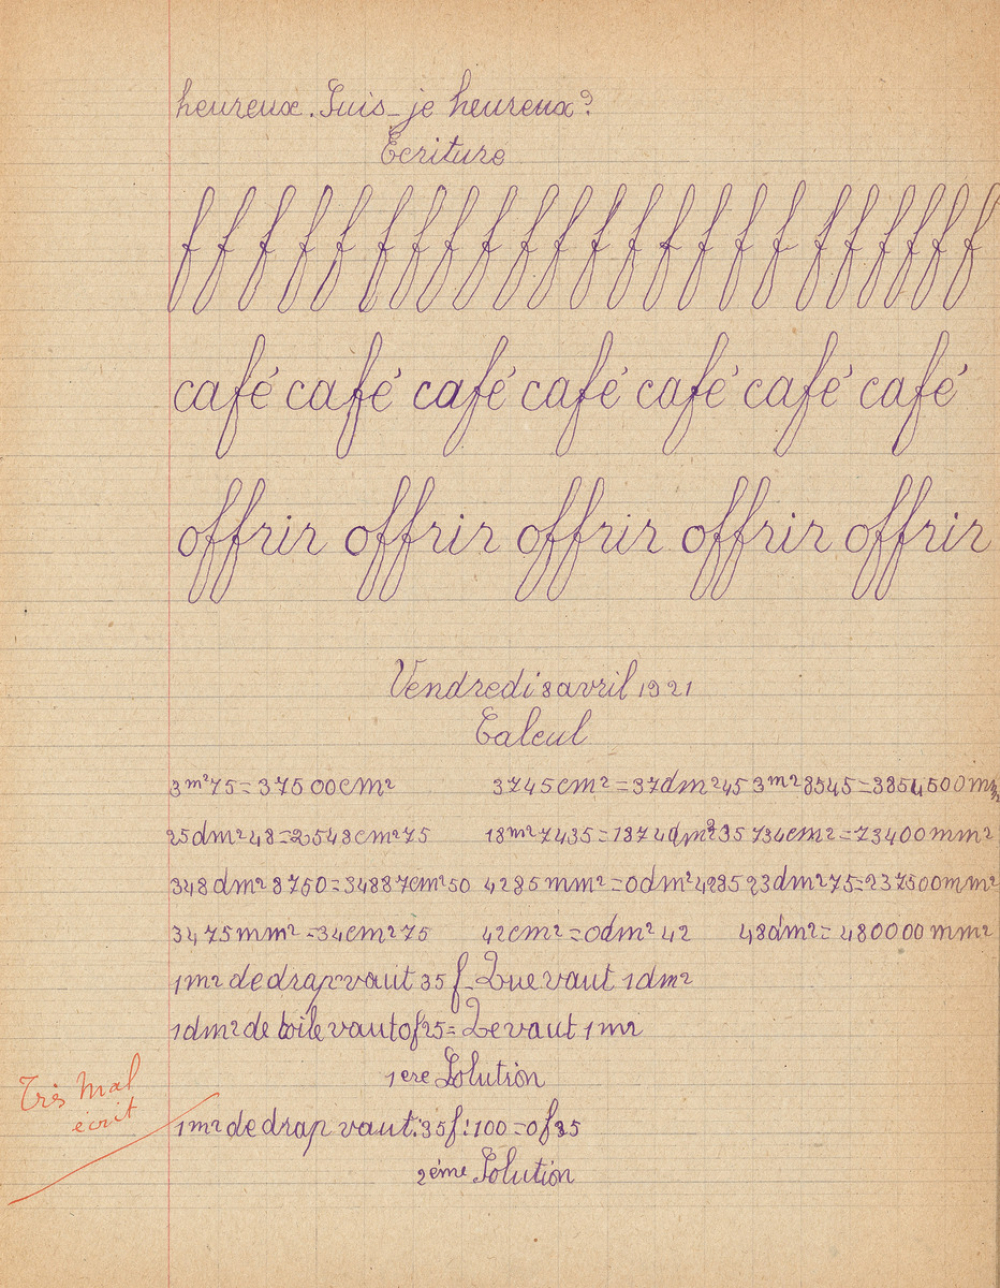 heureux. Suis-je heureux?
Ecriture
f f f f f f f f f f f f f f f f f f f f f f f f
café café café café café café café
offrir offrir offrir offrir offrir
Vendredi 8 avril 1921
Calcul
3m²75=37500cm² 3745cm²=37dm²45 3m²8545=3854500m
25dm²48=2548cm²75 18m²7435=1874dm²35 734cm²=73400mm²
348dm²8750=34887cm²50 4285mm²=0dm²4285 23dm²75=237500mm²
3475mm²=34cm²75 42cm²=0dm²42 48dm²=480000mm²
1m² de drap vaut 35f_Que vaut 1dm²
1dm² de toile vaut 0f25= Que vaut 1m²
1ere Solution
Très Mal
écrit
1m² de drap vaut:35f:100=0f35
2éme Solution